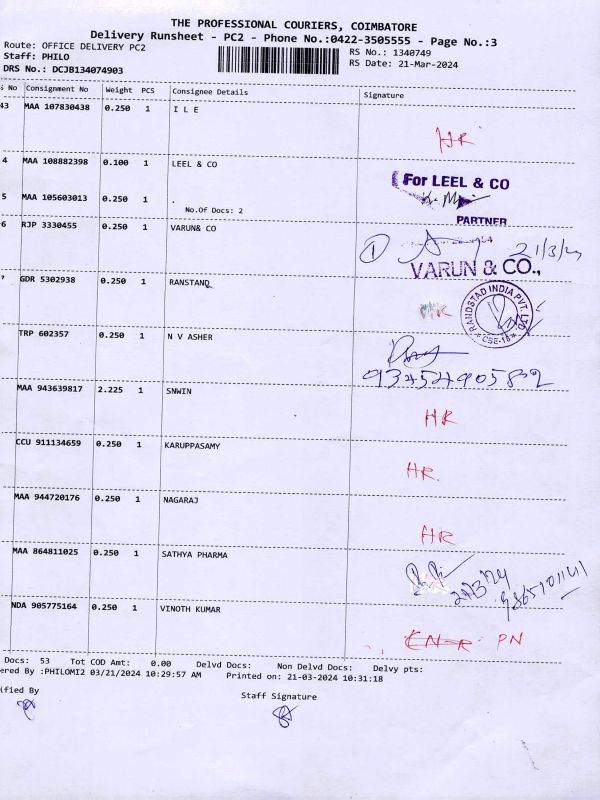 THE PROFESSIONAL COURIERS, COIMBATORE
Delivery Runsheet - PC2 - Phone No.:0422-3505555 - Page No.:3
Route: OFFICE DELIVERY PC2
RS No.: 1340749
Staff: PHILO
RS Date: 21-Mar-2024
DRS No.: DCJB134074903
No Consignment No Weight PCS Consignee Details Signature
43 MAA 107830438 0.250 1 I L E
HR
4 MAA 108882398 0.100 1 LEEL & CO
For LEEL & CO
PARTNER
5 MAA 105603013 0.250 1 .
No.Of Docs: 2
6 RJP 3330455 0.250 1 VARUN& CO
1 21/3/24
VARUN & CO.,
7 GDR 5302938 0.250 1 RANSTAND
HR
RANDSTAD INDIA PVT. LTD.
CBE-18
TRP 602357 0.250 1 N V ASHER
MAA 943639817 2.225 1 SNWIN
HR
CCU 911134659 0.250 1 KARUPPASAMY
HR
MAA 944720176 0.250 1 NAGARAJ
HR
MAA 864811025 0.250 1 SATHYA PHARMA
NDA 905775164 0.250 1 VINOTH KUMAR
PN
Docs: 53 Tot COD Amt: 0.00 Delvd Docs: Non Delvd Docs: Delvy pts:
ered By :PHILOMI2 03/21/2024 10:29:57 AM Printed on: 21-03-2024 10:31:18
ified By
Staff Signature